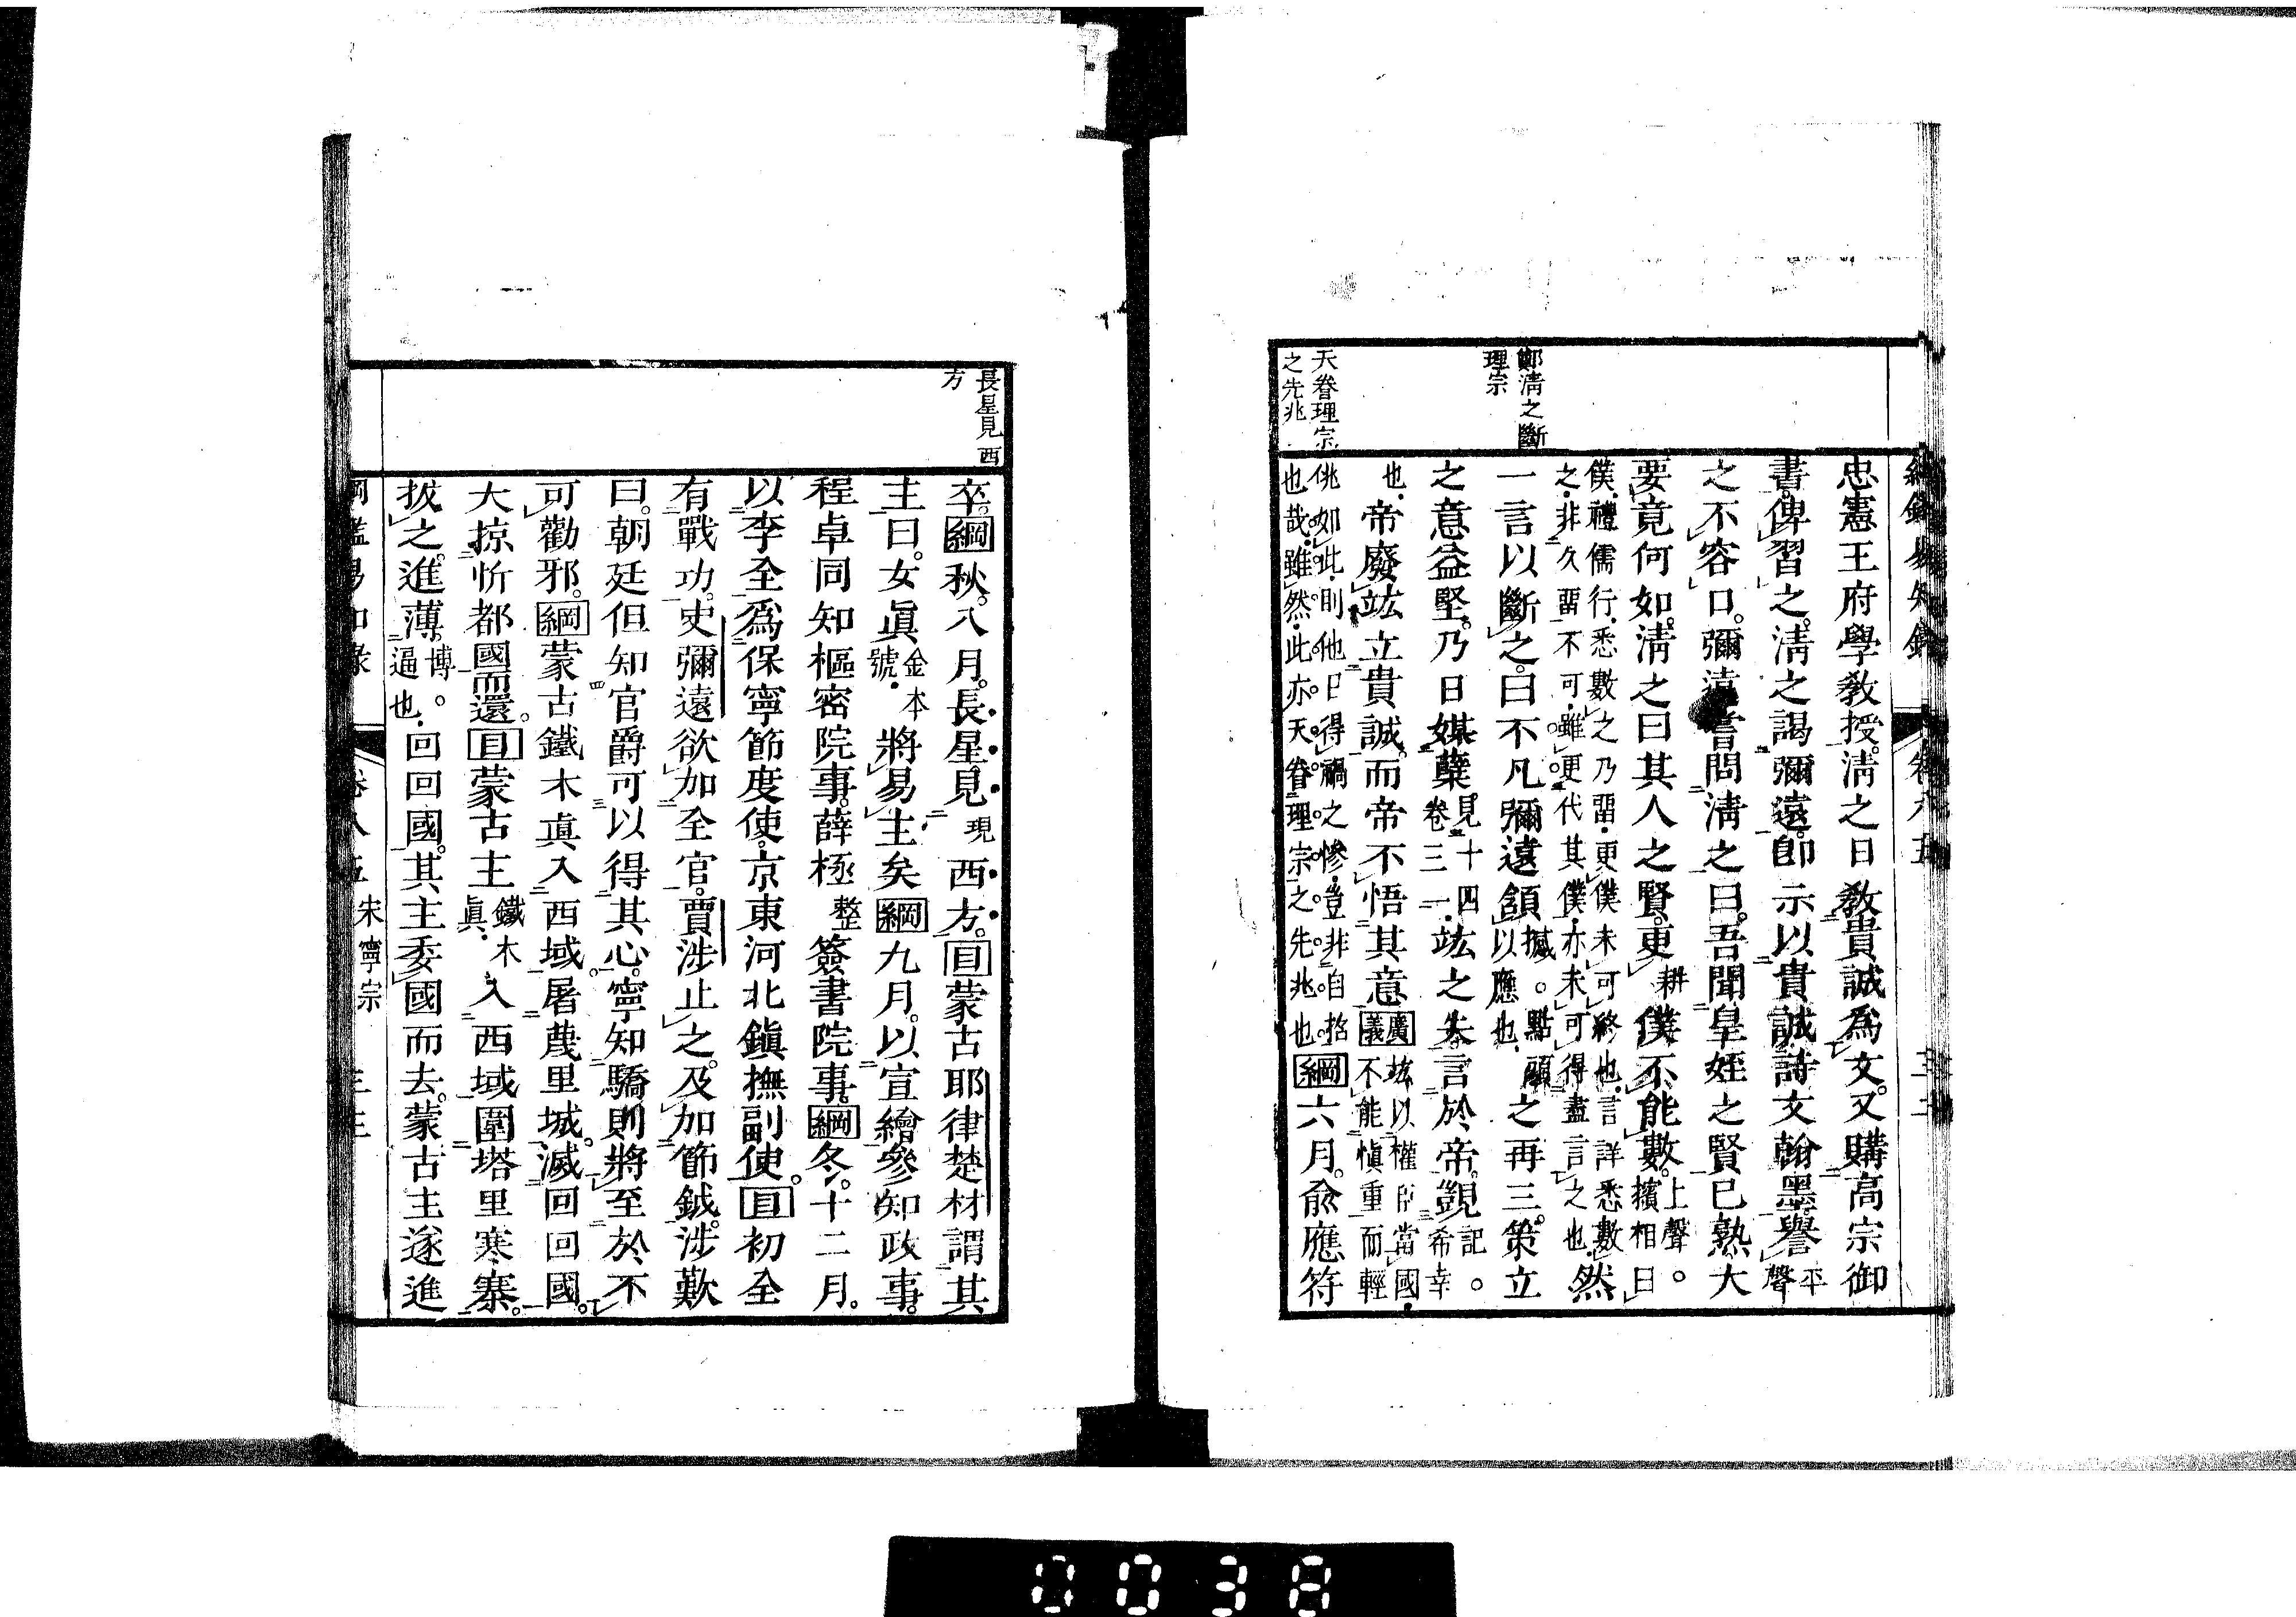 綱鑑易知錄 卷八五 三二
鄭淸之斷
理宗
天眷理宗
之先兆
忠憲王府學敎授淸之日敎貴誠爲文又購高宗御
書俾習之淸之謁彌遠卽示以貴誠詩文翰墨譽平聲
之不容口彌遠嘗問淸之曰吾聞皇姪之賢已熟大
要竟何如淸之曰其人之賢更耕僕不能數上聲。擯相曰
僕禮儒行悉數之乃畱更僕未可終也言詳悉數
之非久畱不可雖更代其僕亦未可得盡言之也然
一言以斷之曰不凡彌遠頷撼。點頭以應也之再三策立
之意益堅乃日媒蘗見十四卷三一竑之失言於帝覬記。希幸
也帝廢竑立貴誠而帝不悟其意廣義竑以權臣當國不能愼重而輕
佻如此則他日得禍之慘豈非自招
也哉雖然此亦天眷理宗之先兆也綱六月兪應符
長星見西
方
卒綱秋八月長星見現西方目蒙古耶律楚材謂其
主曰女眞金本號將易主矣綱九月以宣繒參知政事
程卓同知樞密院事薛極整簽書院事綱冬十二月
以李全爲保寧節度使京東河北鎭撫副使目初全
有戰功史彌遠欲加全官賈涉止之及加節鉞涉歎
曰朝廷但知官爵可以得其心寧知驕則將至於不
可勸邪綱蒙古鐵木眞入西域屠蔑里城滅回回國
大掠忻都國而還目蒙古主鐵木眞入西域圍塔里寒寨
拔之進薄博。逼也回回國其主委國而去蒙古主遂進
綱鑑易知錄 卷八五 宋寧宗 三三
0038